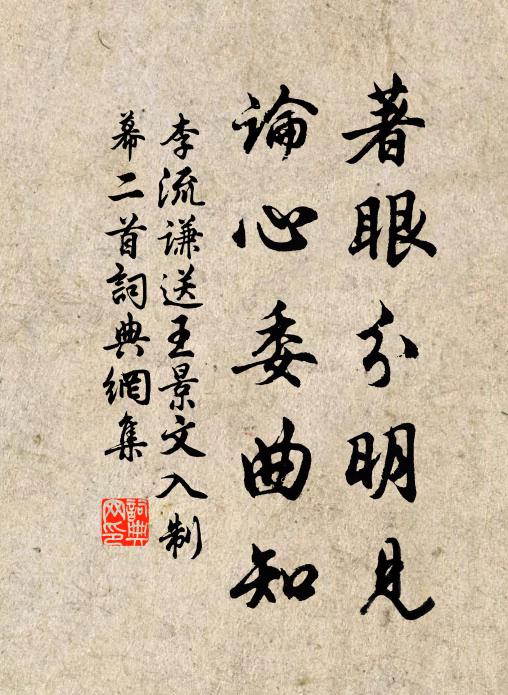 著眼分明見
論心委曲知
李流謙送王景文入制
幕二首詞典網集
詞典網印